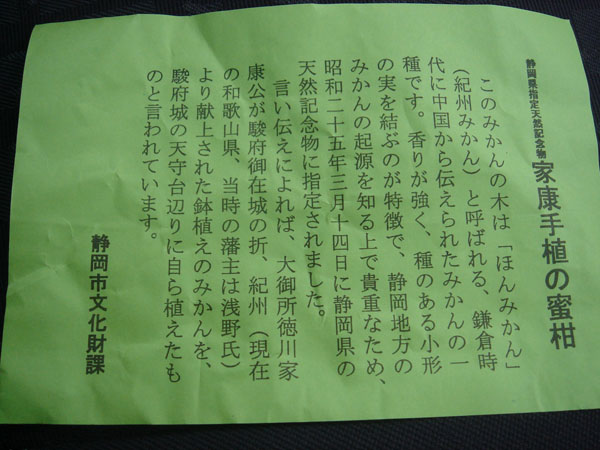 静岡県指定天然記念物 家康手植の蜜柑
このみかんの木は「ほんみかん」
（紀州みかん）と呼ばれる、鎌倉時
代に中国から伝えられたみかんの一
種です。香りが強く、種のある小形
の実を結ぶのが特徴で、静岡地方の
みかんの起源を知る上で貴重なため、
昭和二十五年三月十四日に静岡県の
天然記念物に指定されました。
言い伝えによれば、大御所徳川家
康公が駿府御在城の折、紀州（現在
の和歌山県、当時の藩主は浅野氏）
より献上された鉢植えのみかんを、
駿府城の天守台辺りに自ら植えたも
のと言われています。
静岡市文化財課